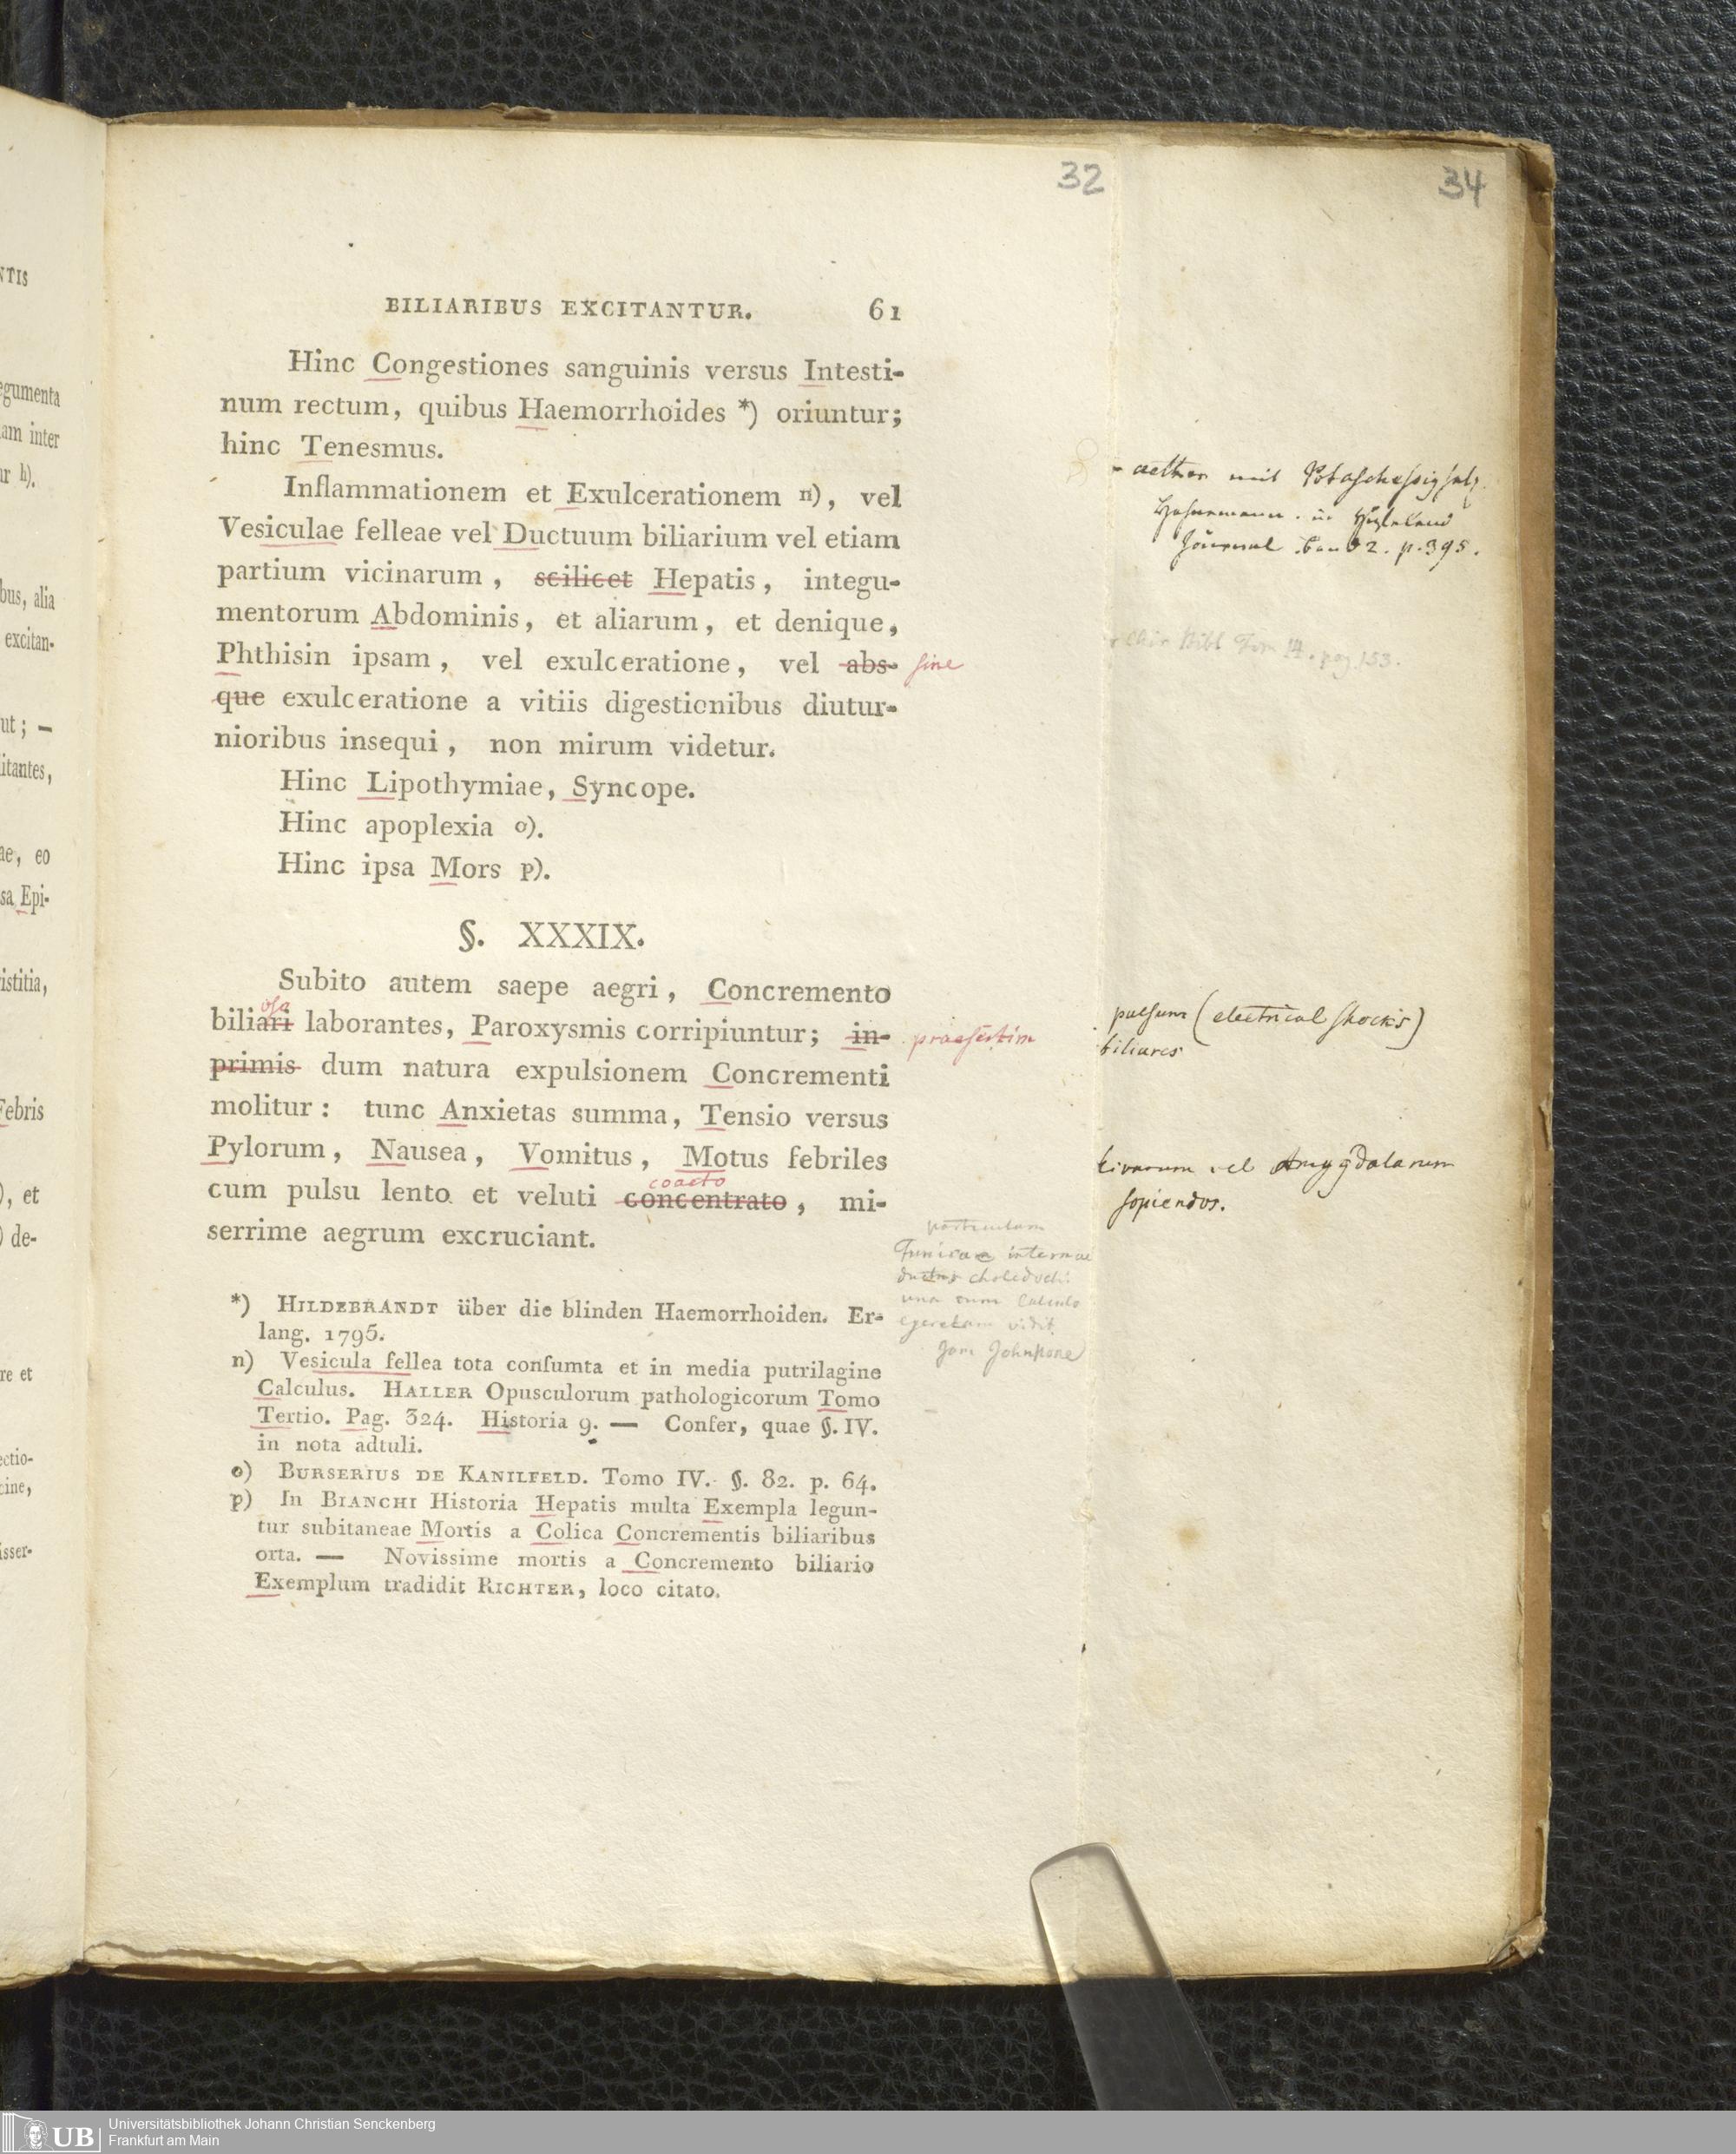 32
34
BILIARIBUS EXCITANTUR. 61
Hinc Congestiones sanguinis versus Intesti-
num rectum, quibus Haemorrhoides *) oriuntur;
hinc Tenesmus.
Inflammationem et Exulcerationem n), vel
Vesiculae felleae vel Ductuum biliarium vel etiam
partium vicinarum, scilicet Hepatis, integu-
mentorum Abdominis, et aliarum, et denique,
Phthisin ipsam, vel exulceratione, vel abs- sine
que exulceratione a vitiis digestionibus diutur-
nioribus insequi, non mirum videtur.
Hinc Lipothymiae, Syncope.
Hinc apoplexia o).
Hinc ipsa Mors p).
§. XXXIX.
Subito autem saepe aegri, Concremento
osa
biliari laborantes, Paroxysmis corripiuntur; in- praesertim
primis dum natura expulsionem Concrementi
molitur: tunc Anxietas summa, Tensio versus
Pylorum, Nausea, Vomitus, Motus febriles
coacto
cum pulsu lento et veluti concentrato, mi-
serrime aegrum excruciant.
*) HILDEBRANDT über die blinden Haemorrhoiden. Er-
lang. 1795.
n) Vesicula fellea tota consumta et in media putrilagine
Calculus. HALLER Opusculorum pathologicorum Tomo
Tertio. Pag. 324. Historia 9. — Confer, quae §. IV.
in nota adtuli.
o) BURSERIUS DE KANILFELD. Tomo IV. §. 82. p. 64.
p) In BIANCHI Historia Hepatis multa Exempla legun-
tur subitaneae Mortis a Colica Concrementis biliaribus
orta. — Novissime mortis a Concremento biliario
Exemplum tradidit RICHTER, loco citato.
particulam
Tunicae internae
ductus choledochi
una cum Calculo
egerekam vidit
Jam Johnstone
aether mit
in Hufeland
Journal Band 2. p. 395.
Chir Bibl Tom 14. pag 153.
pulsum (electrical shocks)
biliares
vel Amygdalarum
sopiendos.
NTIS
egumenta
am inter
ur h).
bus, alia
excitan-
ut; —
litantes,
ae, eo
sa Epi-
istitia,
Febris
), et
) de-
re et
ectio-
cine,
isser-
UB
Universitätsbibliothek Johann Christian Senckenberg
Frankfurt am Main